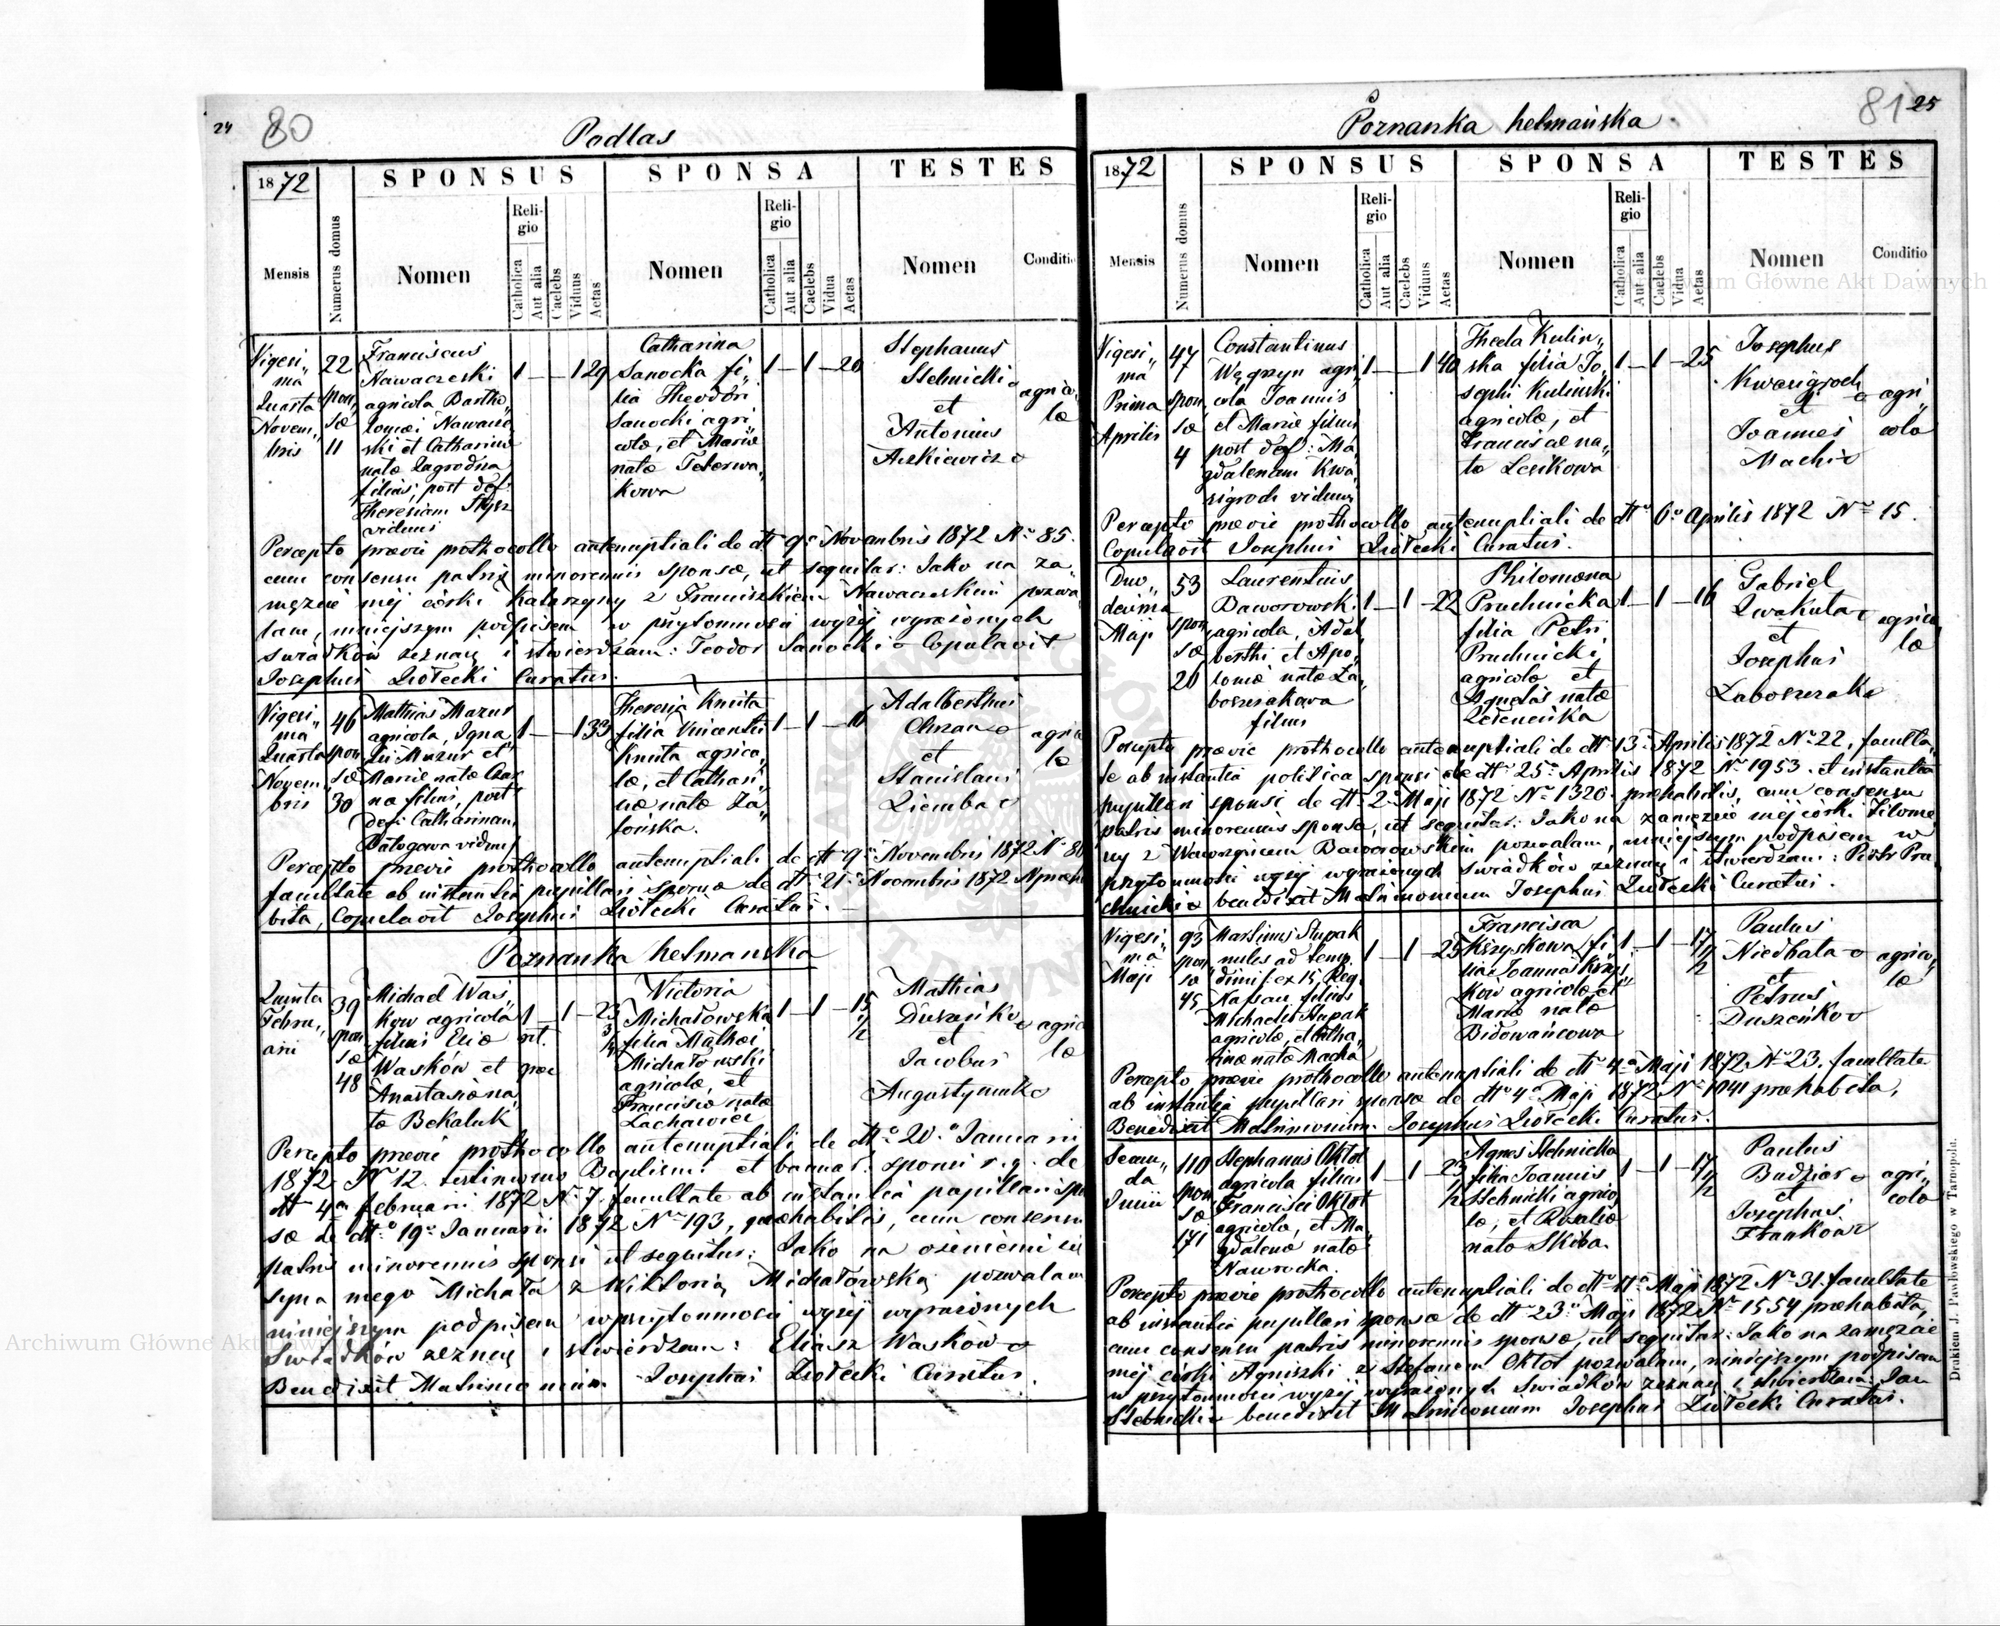 24
80
Podlas
1872
SPONSUS
SPONSA
TESTES
Mensis
Numerus domus
Nomen
Religio
Catholica
Aut alia
Caelebs
Viduus
Aetas
Nomen
Religio
Catholica
Aut alia
Caelebs
Vidua
Aetas
Nomen
Conditio
Vigesi„
ma
Quarta
Novem„
bris
22
spon„
sæ
11
Franciscus
Nawaczeski
agricola Bartho„
lomæi
ski et Catharinæ
natæ Zagrodna
filius, post def.
Theresiam
viduus
1 — — 1 29
Catharina
Sanocka fi„
lia Theodori
Sanocki agri„
colæ, et Mariæ
natæ
kowa
1 — 1 — 20
Stephanus
Stelmicki
et
Antonius
agrico„
læ
Percepto prævie prothocollo antenuptiali de dtt 9. Novembris 1872 Nr 85.
cum consensu patris minorennis sponsæ, ut sequitur: Jako na za„
mężcie mej córki Katarzyny z Franciszkiem Nawaczeskim pozwa„
lam, niniejszym podpisem w przytomności wyżej wyrażonych
świadków zeznaję i stwierdzam: Teodor Sanocki Copulavit
Josephus Ziołecki Curatus.
Vigesi„
ma
Quarta
Novem„
bris
46
spon„
sæ
30
Mathias Mazur
agricola, Igna„
tii Mazur et
Mariæ natæ
na filius, post
def. Catharinam
viduus
1 — — 1 33
Theresia Knuta
filia Vincentii
Knuta agrico„
læ, et Cathari„
næ natæ Za„
łońska.
1 — 1 —
Adalbertus
Chrzan
et
Stanislaus
Ziemba
agrico
læ
Percepto prævie prothocollo antenuptiali de dtt 9. Novembris 1872 Nr 86
facultate ab instantia pupillari sponsæ de dtt 21. Novembris 1872 præha
bita, Copulavit Josephus Ziołecki Curatus.
Poznanka hetmanska
Quinta
Febru„
arii
39
spon
sæ
48
Michael Was„
kow agricola
filius Eliæ
Wasków et
Anastasiæ na„
tæ Bekaluk
1 — 1 — 23
rit.
græc
3/4
Victoria
Michałowska
filia Mathæi
Michałowski
agricolæ, et
Franciscæ natæ
Lachawiec
1 — 1 — 15
1/2
Mathias
Duszeńko
et
Jacobus
Augustynuk
agrico
læ
Percepto prævie prothocollo antenuptiali de dtto 20. Januarii
1872 Nr 12. testimonio Baptismi et bannor. sponsi r. g. de
dtt 4ta februarii 1872 Nr 7. facultate ab instantia pupillari spon
sæ de dtto 19. Januarii 1872 Nr 193, præhabitis, cum consensu
patris minorennis sponsi ut sequitur: Jako na ożenienie się
syna mego Michała z Wiktorią Michałowską pozwalam
niniejszym podpisem w przytomności wyżej wyrażonych
świadków zeznaję i stwierdzam: Eliasz Wasków
Benedixit Matrimonium Josephus Ziołecki Curatus.
Poznanka hetmańska.
81
25
1872
SPONSUS
SPONSA
TESTES
Mensis
Numerus domus
Nomen
Religio
Catholica
Aut alia
Caelebs
Viduus
Aetas
Nomen
Religio
Catholica
Aut alia
Caelebs
Vidua
Aetas
Nomen
Conditio
Vigesi„
ma
Prima
Aprilis
47
spon„
sæ
4
Constantinus
Węgrzyn agri„
cola Joannis
et Mariæ filius
post def: Ma„
gdalenam Kwa
sigroch viduus
1 — — 1 40
Thecla Kulin„
ska filia Jo„
sephi Kulinski
agricolæ, et
Franciscæ na„
tæ Lesikowa
1 — 1 — 25
Josephus
Kwasigroch
et
Joannes
Machi
agri„
colæ
Percepto prævie prothocollo antenuptiali de dtto 6. Aprilis 1872 Nr 15.
Copulavit Josephus Ziołecki Curatus.
Duo„
decima
Maji
53
spon
sæ
26
Laurentius
Baworowski
agricola, Adal„
berthi et Apo„
loniæ natæ Za„
boszczakowa
filius
1 — 1 — 22
Philomena
Pruchnicka
filia Petri
Pruchnicki
agricolæ et
Agnetis natæ
1 — 1 — 16
Gabriel
et
Josephus
Laboszczak
agrico„
læ
Percepto prævie prothocollo antenuptiali de dtt 13. Aprilis 1872 Nr 22, faculta„
te ab instantia politica sponsi de dtt 25. Aprilis 1872 Nr 1953. et instantia
pupillari sponsi de dtt 2. Maji 1872 Nr 1320. præhabitis, cum consensu
patris minorennis sponsæ, ut sequitur: Jako na zamężcie mej córki Filome
ny z Wawrzyńcem Baworowskim pozwalam, niniejszym podpisem w
przytomności wyżej wyrażonych świadków zeznaję i stwierdzam: Piotr Pru„
chnicki benedixit Matrimonium Josephus Ziołecki Curatus.
Vigesi„
ma
Maji
93
spon
sæ
45
Martinus Stupak
miles ad temp.
dimis. ex 15 Reg.
Nassau filius
Michaelis Stupak
agricolæ, et Catha„
rinæ natæ Macha
1 — 1 — 25
Francisca
Krzyskowa fi„
lia Joannis Krzys„
kow agricolæ et
Mariæ natæ
Bidowańcowa
1 — 1 — 17
1/2
Paulus
Niedbała
et
Petrus
Duszeńko
agrico„
læ
Percepto prævie prothocollo antenuptiali de dtt 4ta Maji 1872 Nr 23. facultate
ab instantia pupillari sponsæ de dtt 4ta Maji 1872 Nr 1041 præhabita,
Benedixit Matrimonium Josephus Ziołecki Curatus.
Secun„
da
Junii
110
spon
sæ
171
Stephanus Oktoł
agricola filius
Francisci Oktoł
agricolæ, et Ma„
gdalenæ natæ
Nawrocka.
1 — 1 — 23
1/2
Agnes Stelmicka
filia Joannis
Stelmicki agrico„
læ, et Rosaliæ
natæ Skiba
1 — 1 — 17
1/2
Paulus
Budziar
et
Josephus
Franków
agri„
colæ
Percepto prævie prothocollo antenuptiali de dtt 11. Maji 1872 Nr 31 facultate
ab instantia pupillari sponsæ de dtt 23. Maji 1872 Nr 1554 præhabita,
cum consensu patris minorennis sponsæ, ut sequitur: Jako na zamężcie
mej córki Agnieszki z Stefanem Oktoł pozwalam, niniejszym podpisem
w przytomności wyżej wyrażonych świadków zeznaję i stwierdzam: Jan
Stelmicki benedixit Matrimonium Josephus Ziołecki Curatus.
Drukiem J. Pawłowskiego w Tarnopolu.
Archiwum Główne Akt Dawnych
Archiwum Główne Akt Dawnych